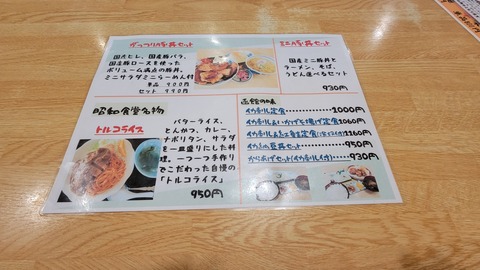 がっつり豚丼セット
国産ヒレ、国産豚バラ、
国産豚ロースを使った
ボリューム満点の豚丼。
ミニサラダミニらーめん付
単品 900円
セット 990円
ミニ豚丼セット
国産ミニ豚丼と
ラーメン、そば、
うどん選べるセット
930円
昭和食堂名物
トルコライス
バターライス、
とんかつ、カレー、
ナポリタン、サラダ
を一皿盛りにした料
理。一つ一つ手作り
でこだわった自慢の
「トルコライス」
950円
函館の味
イカ刺し定食 1000円
イカ刺し&いかげそ揚げ定食 1060円
1260円
950円
からあげセット(イカ刺し付) 930円